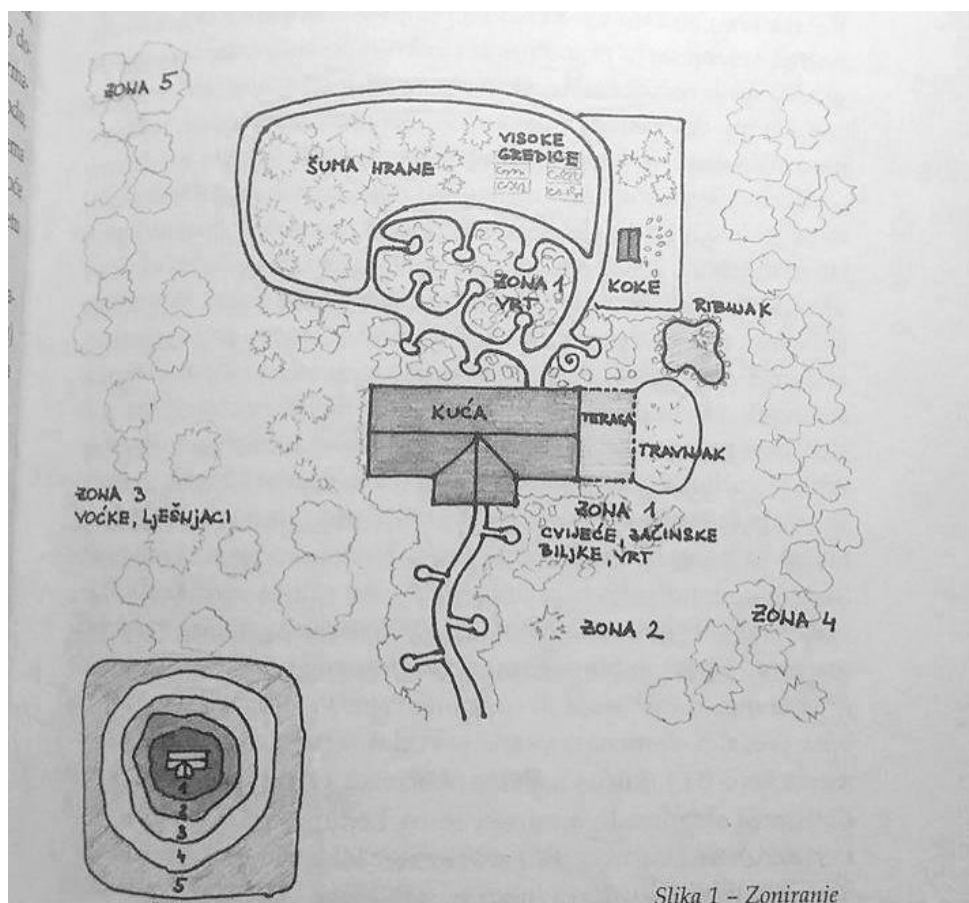 ZONA 5
VISOKE
GREDICE
ŠUMA HRANE
ZONA 1
VRT
KOKE
RIBNJAK
KUĆA
TERASA
TRAVNJAK
ZONA 3
VOĆKE, LJEŠNJACI
ZONA 1
CVIJEĆE, ZAČINSKE
BILJKE, VRT
ZONA 2
ZONA 4
1
2
3
4
5
Slika 1 – Zoniranje